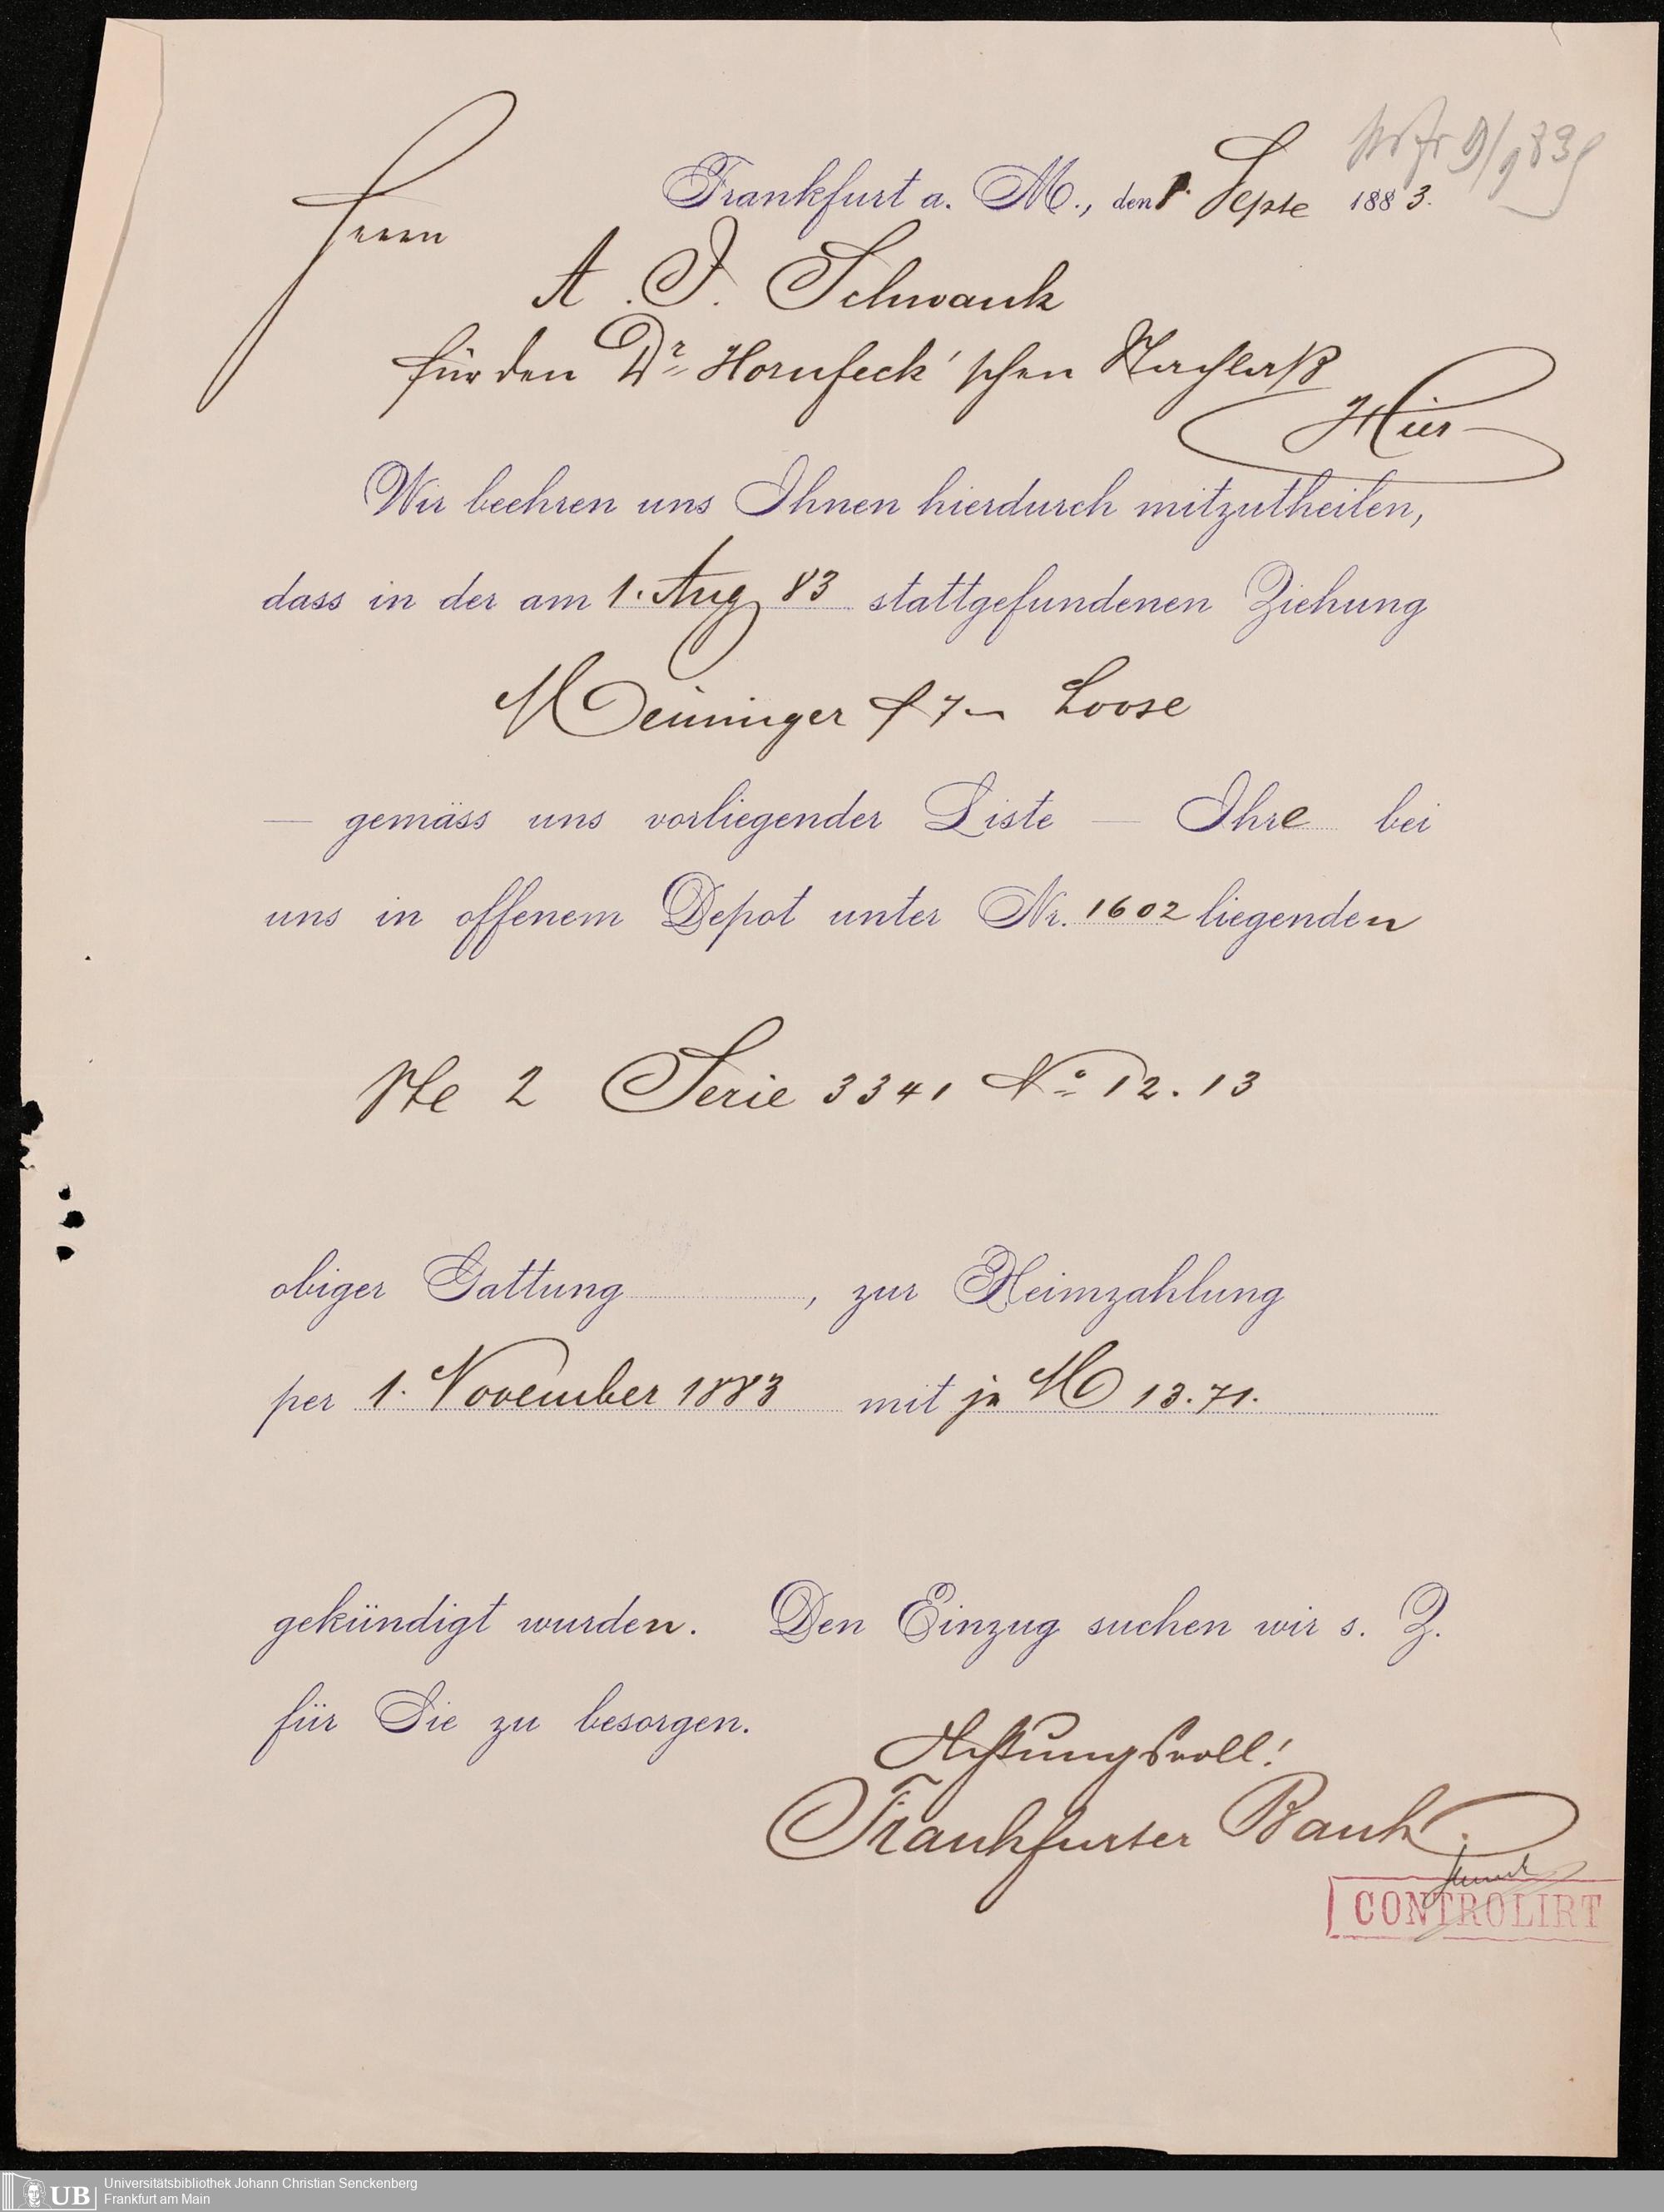 Frankfurt a. M., den 1. Septe 1883.
Herrn
A. J. Schwank
für den Dr. Hornfeck'schen Nachlaß
Hier
Wir beehren uns Ihnen hierdurch mitzutheilen,
dass in der am 1. Aug 83 stattgefundenen Ziehung
Meininger f 7 Loose
— gemäss uns vorliegender Liste — Ihre bei
uns in offenem Depot unter Nr. 1602 liegenden
Ste 2 Serie 3341 No 12. 13
obiger Gattung, zur Heimzahlung
per 1. November 1883 mit je M 13.71.
gekündigt wurden. Den Einzug suchen wir s. Z.
für Sie zu besorgen.
Achtungsvoll!
Frankfurter Bank.
CONTROLIRT
UB Universitätsbibliothek Johann Christian Senckenberg
Frankfurt am Main